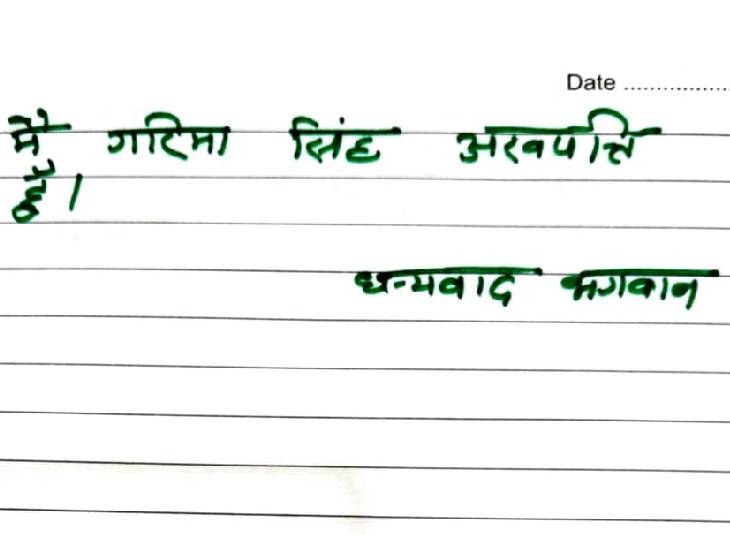 Date ..................
मैं गरिमा सिंह अरबपति
हूँ।
धन्यवाद भगवान